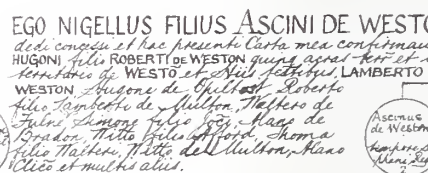 EGO NIGELLUS FILIUS ASCINI DE WESTO
dedi concessi et hac presenti Carta mea confirmavi
HUGONI filio ROBERTI DE WESTON quinq acras terr et
territorio de WESTO et Hiis testibus, LAMBERTO
WESTON, Hugone de Roberto
filio Lamberti de Multon, Waltero de
Simone filio Joci, Alano de
Bradon, Witto filio Thoma
filio Walteri, Witto de Multon, Alano
Clico et multis aliis.
Ascinus
de Weston
tempore